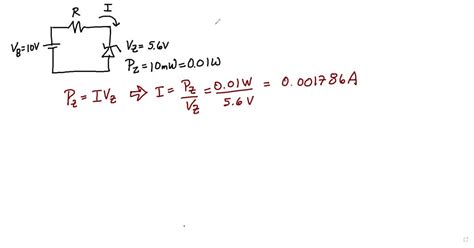 R I
V_B=10V
V_Z = 5.6V
P_Z = 10mW = 0.01W
P_Z = I V_Z ⇨ I = P_Z/V_Z = 0.01W/5.6V = 0.001786A